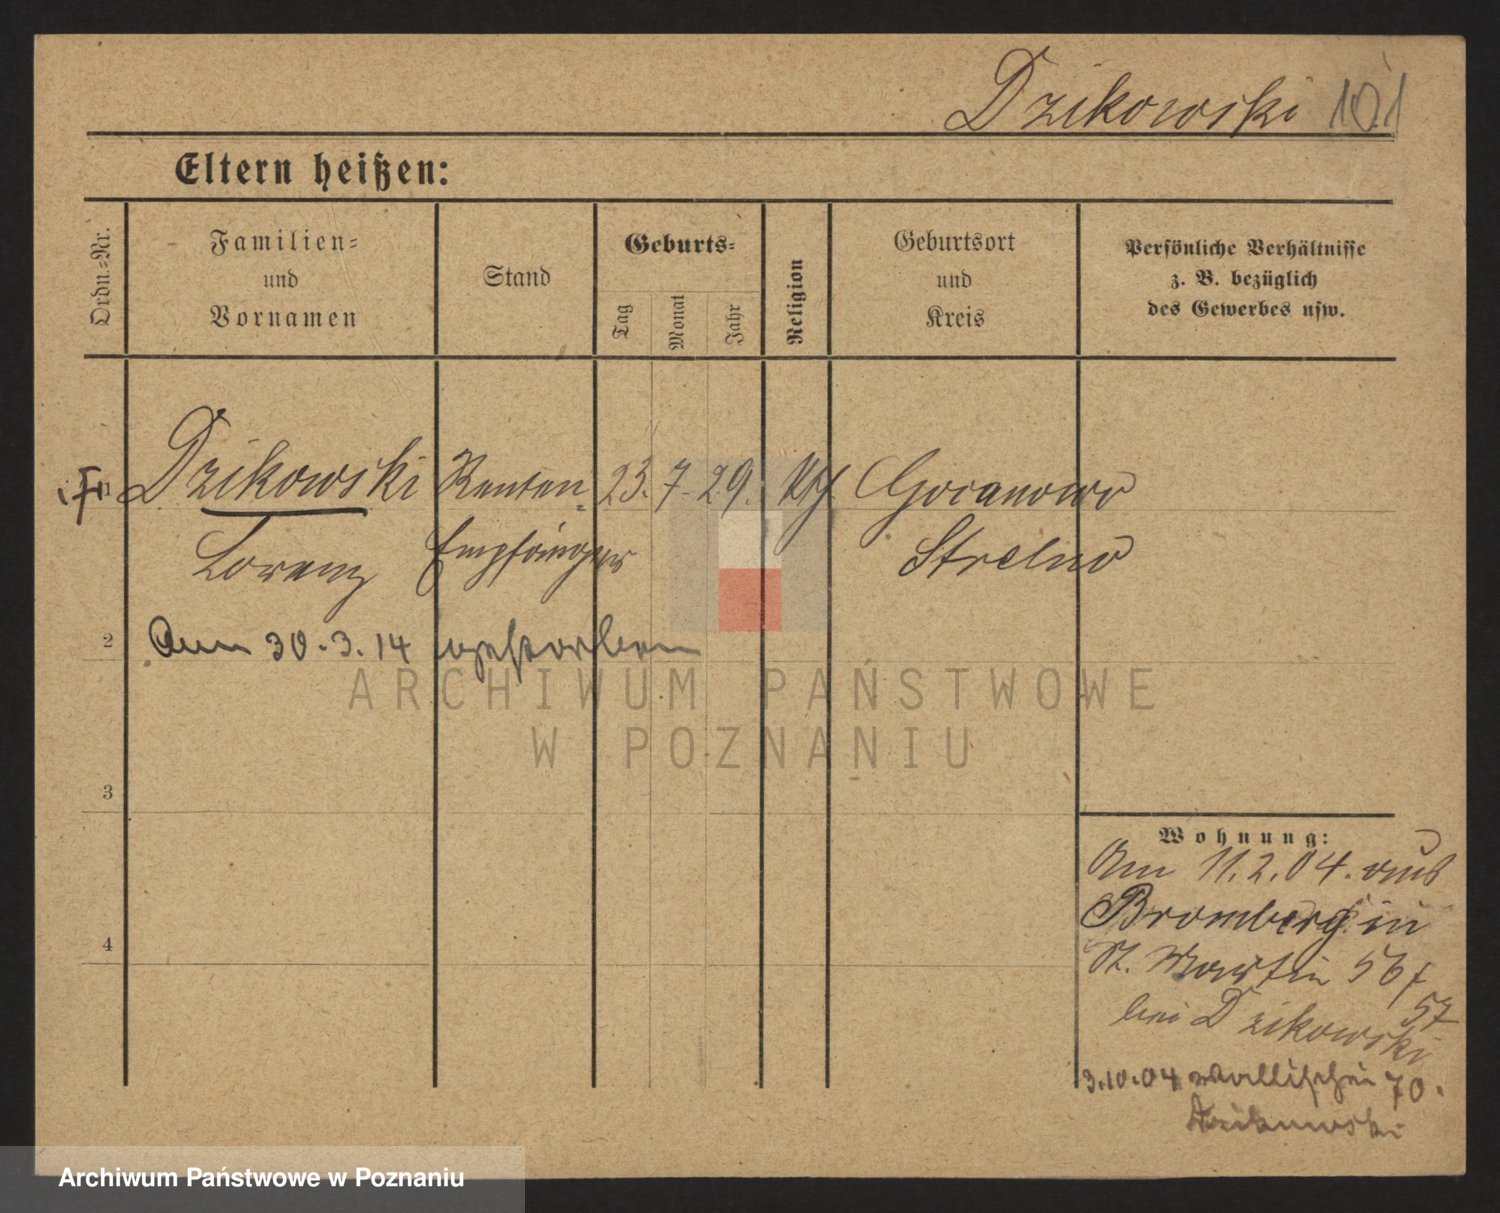 Dzikowski 101
Eltern heißen:
Ordn.=Nr.
Familien=
und
Vornamen
Stand
Geburts=
Tag
Monat
Jahr
Religion
Geburtsort
und
Kreis
Persönliche Verhältnisse
z. B. bezüglich
des Gewerbes usw.
1 Dzikowski Renten 23. 7. 29. kth. Gocanowo
Lorenz Empfänger Strelno
2 Am 30.3.14 gestorben
3
4
Wohnung:
Am 11.2.04. aus
Bromberg in
St. Martin 56/
57
bei Dzikowski
3.10.04 Wallischei 70.
Dzikowski
ARCHIWUM PAŃSTWOWE
W POZNANIU
Archiwum Państwowe w Poznaniu